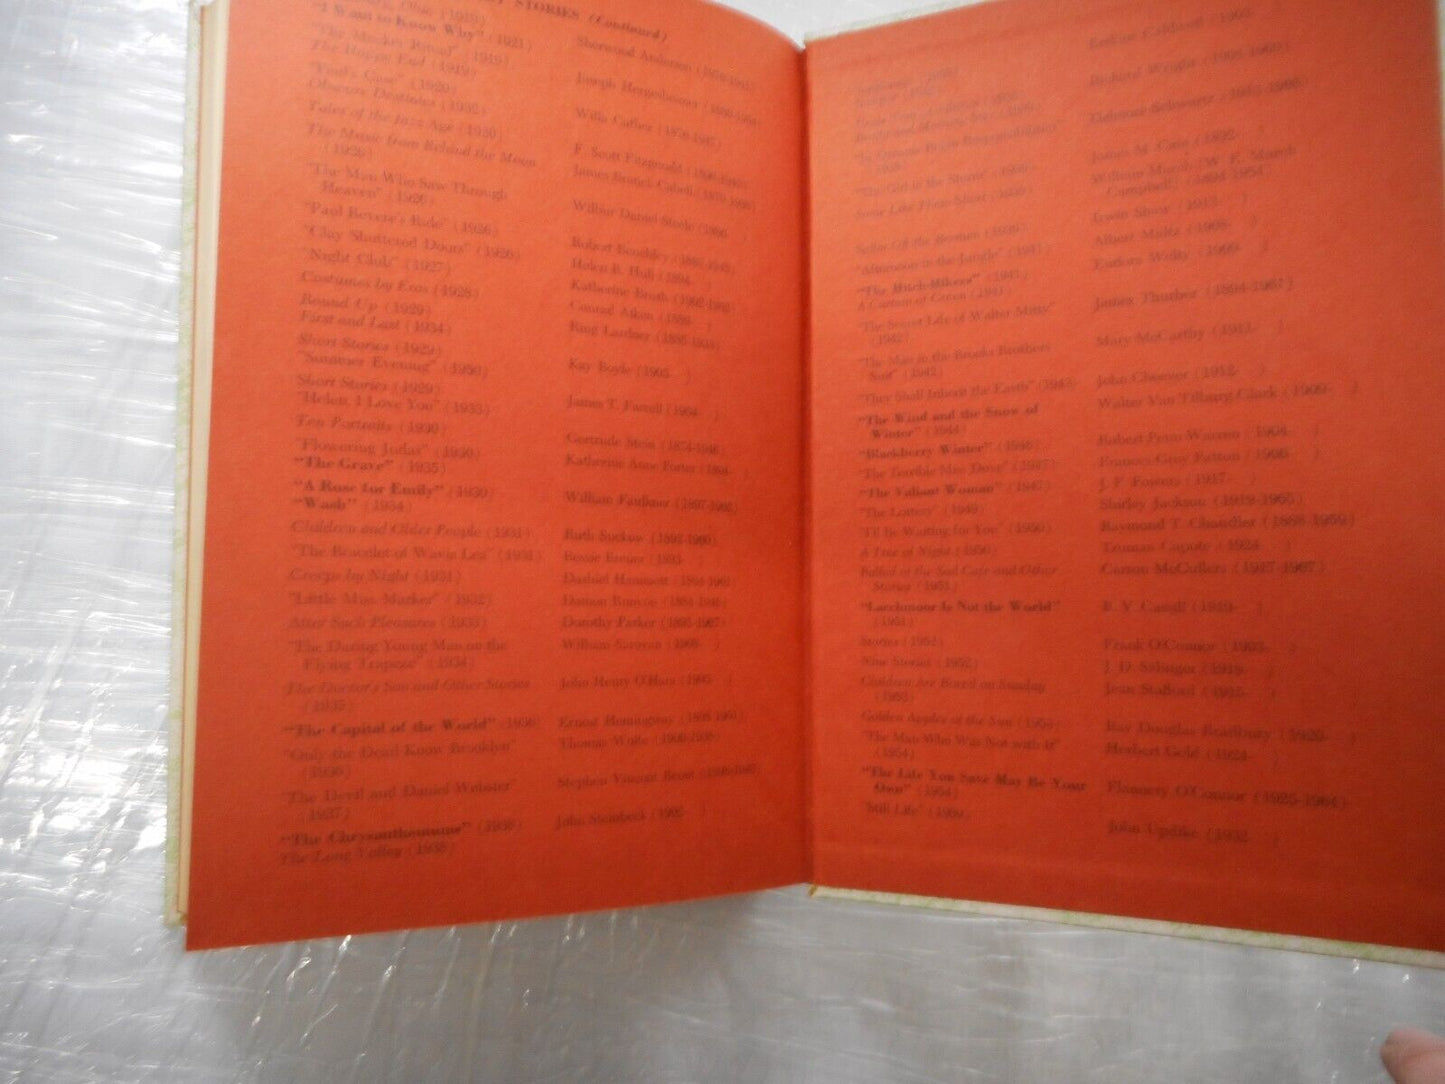 STORIES (Continued)
Ohio (1919)
"I Want to Know Why" (1921)
Sherwood Anderson (1876-1941)
(1919)
The Happy End (1919)
Joseph Hergesheimer (1880-1954)
"Paul's Case" (1920)
Obscure Destinies (1932)
Willa Cather (1876-1947)
Tales of the Jazz Age (1920)
F. Scott Fitzgerald (1896-1940)
The Music from Behind the Moon
(1926)
James Branch Cabell (1879-1958)
"The Man Who Saw Through
Heaven" (1926)
Wilbur Daniel Steele (1886-
"Paul Revere's Ride" (1926)
Robert Benchley (1889-1945)
"Clay Shuttered Doors" (1926)
Helen R. Hull (1894-
"Night Club" (1927)
Katherine Brush (1902-1952)
Costumes by Eros (1928)
Conrad Aiken (1889- )
Round Up (1929)
Ring Lardner (1885-1933)
First and Last (1934)
Short Stories (1929)
"Summer Evening" (1950)
Kay Boyle (1903- )
Short Stories (1929)
"Helen, I Love You" (1933)
James T. Farrell (1904- )
Ten Portraits (1930)
Gertrude Stein (1874-1946)
"Flowering Judas" (1930)
"The Grave" (1935)
Katherine Anne Porter (1894- )
"A Rose for Emily" (1930)
"Wash" (1934)
William Faulkner (1897-1962)
Children and Older People (1931)
Ruth Suckow (1892-1960)
"The Bracelet of Wavia Lea" (1931)
Bessie Breuer (1893-
Creeps by Night (1931)
Dashiel Hammett (1894-1961)
"Little Miss Marker" (1932)
Damon Runyon (1884-1946)
After Such Pleasures (1933)
Dorothy Parker (1893-1967)
"The Daring Young Man on the
Flying Trapeze" (1934)
William Saroyan (1908- )
The Doctor's Son and Other Stories
(1935)
John Henry O'Hara (1905- )
"The Capital of the World" (1936)
Ernest Hemingway (1898-1961)
"Only the Dead Know Brooklyn"
(1936)
Thomas Wolfe (1900-1938)
"The Devil and Daniel Webster"
(1937)
Stephen Vincent Benet (1898-1943)
"The Chrysanthemums" (1938)
The Long Valley (1938)
John Steinbeck (1902- )
Erskine Caldwell (1903-
Richard Wright (1908-1960)
"In Dreams Begin Responsibilities"
(1938)
Delmore Schwartz (1913-1966)
"The Girl in the Storm" (1939)
James M. Cain (1892- )
Some Like Them Short (1939)
William March (W. E. March
Campbell) (1894-1954)
Sailor Off the Bremen (1939)
Irwin Shaw (1913- )
"Afternoon in the Jungle" (1941)
Albert Maltz (1908- )
"The Hitch-Hikers" (1941)
A Curtain of Green (1941)
Eudora Welty (1909- )
"The Secret Life of Walter Mitty"
(1942)
James Thurber (1894-1961)
"The Man in the Brooks Brothers
Suit" (1942)
Mary McCarthy (1912- )
"They Shall Inherit the Earth" (1943)
John Cheever (1912- )
"The Wind and the Snow of
Winter" (1944)
Walter Van Tilburg Clark (1909- )
"Blackberry Winter" (1946)
Robert Penn Warren (1904- )
"The Terrible Miss Dove" (1947)
Frances Gray Patton (1906- )
"The Valiant Woman" (1947)
J. F. Powers (1917- )
"The Lottery" (1949)
Shirley Jackson (1919-1965)
"I'll Be Waiting for You" (1950)
Raymond T. Chandler (1888-1959)
A Tree of Night (1950)
Truman Capote (1924- )
Ballad of the Sad Cafe and Other
Stories (1951)
Carson McCullers (1917-1967)
"Larchmoor Is Not the World"
(1951)
R. V. Cassill (1919- )
Stories (1952)
Frank O'Connor (1903- )
Nine Stories (1952)
J. D. Salinger (1919- )
Children Are Bored on Sunday
(1953)
Jean Stafford (1915- )
Golden Apples of the Sun (1953)
Ray Douglas Bradbury (1920- )
"The Man Who Was Not with It"
(1954)
Herbert Gold (1924- )
"The Life You Save May Be Your
Own" (1954)
Flannery O'Connor (1925-1964)
"Still Life" (1959)
John Updike (1932- )